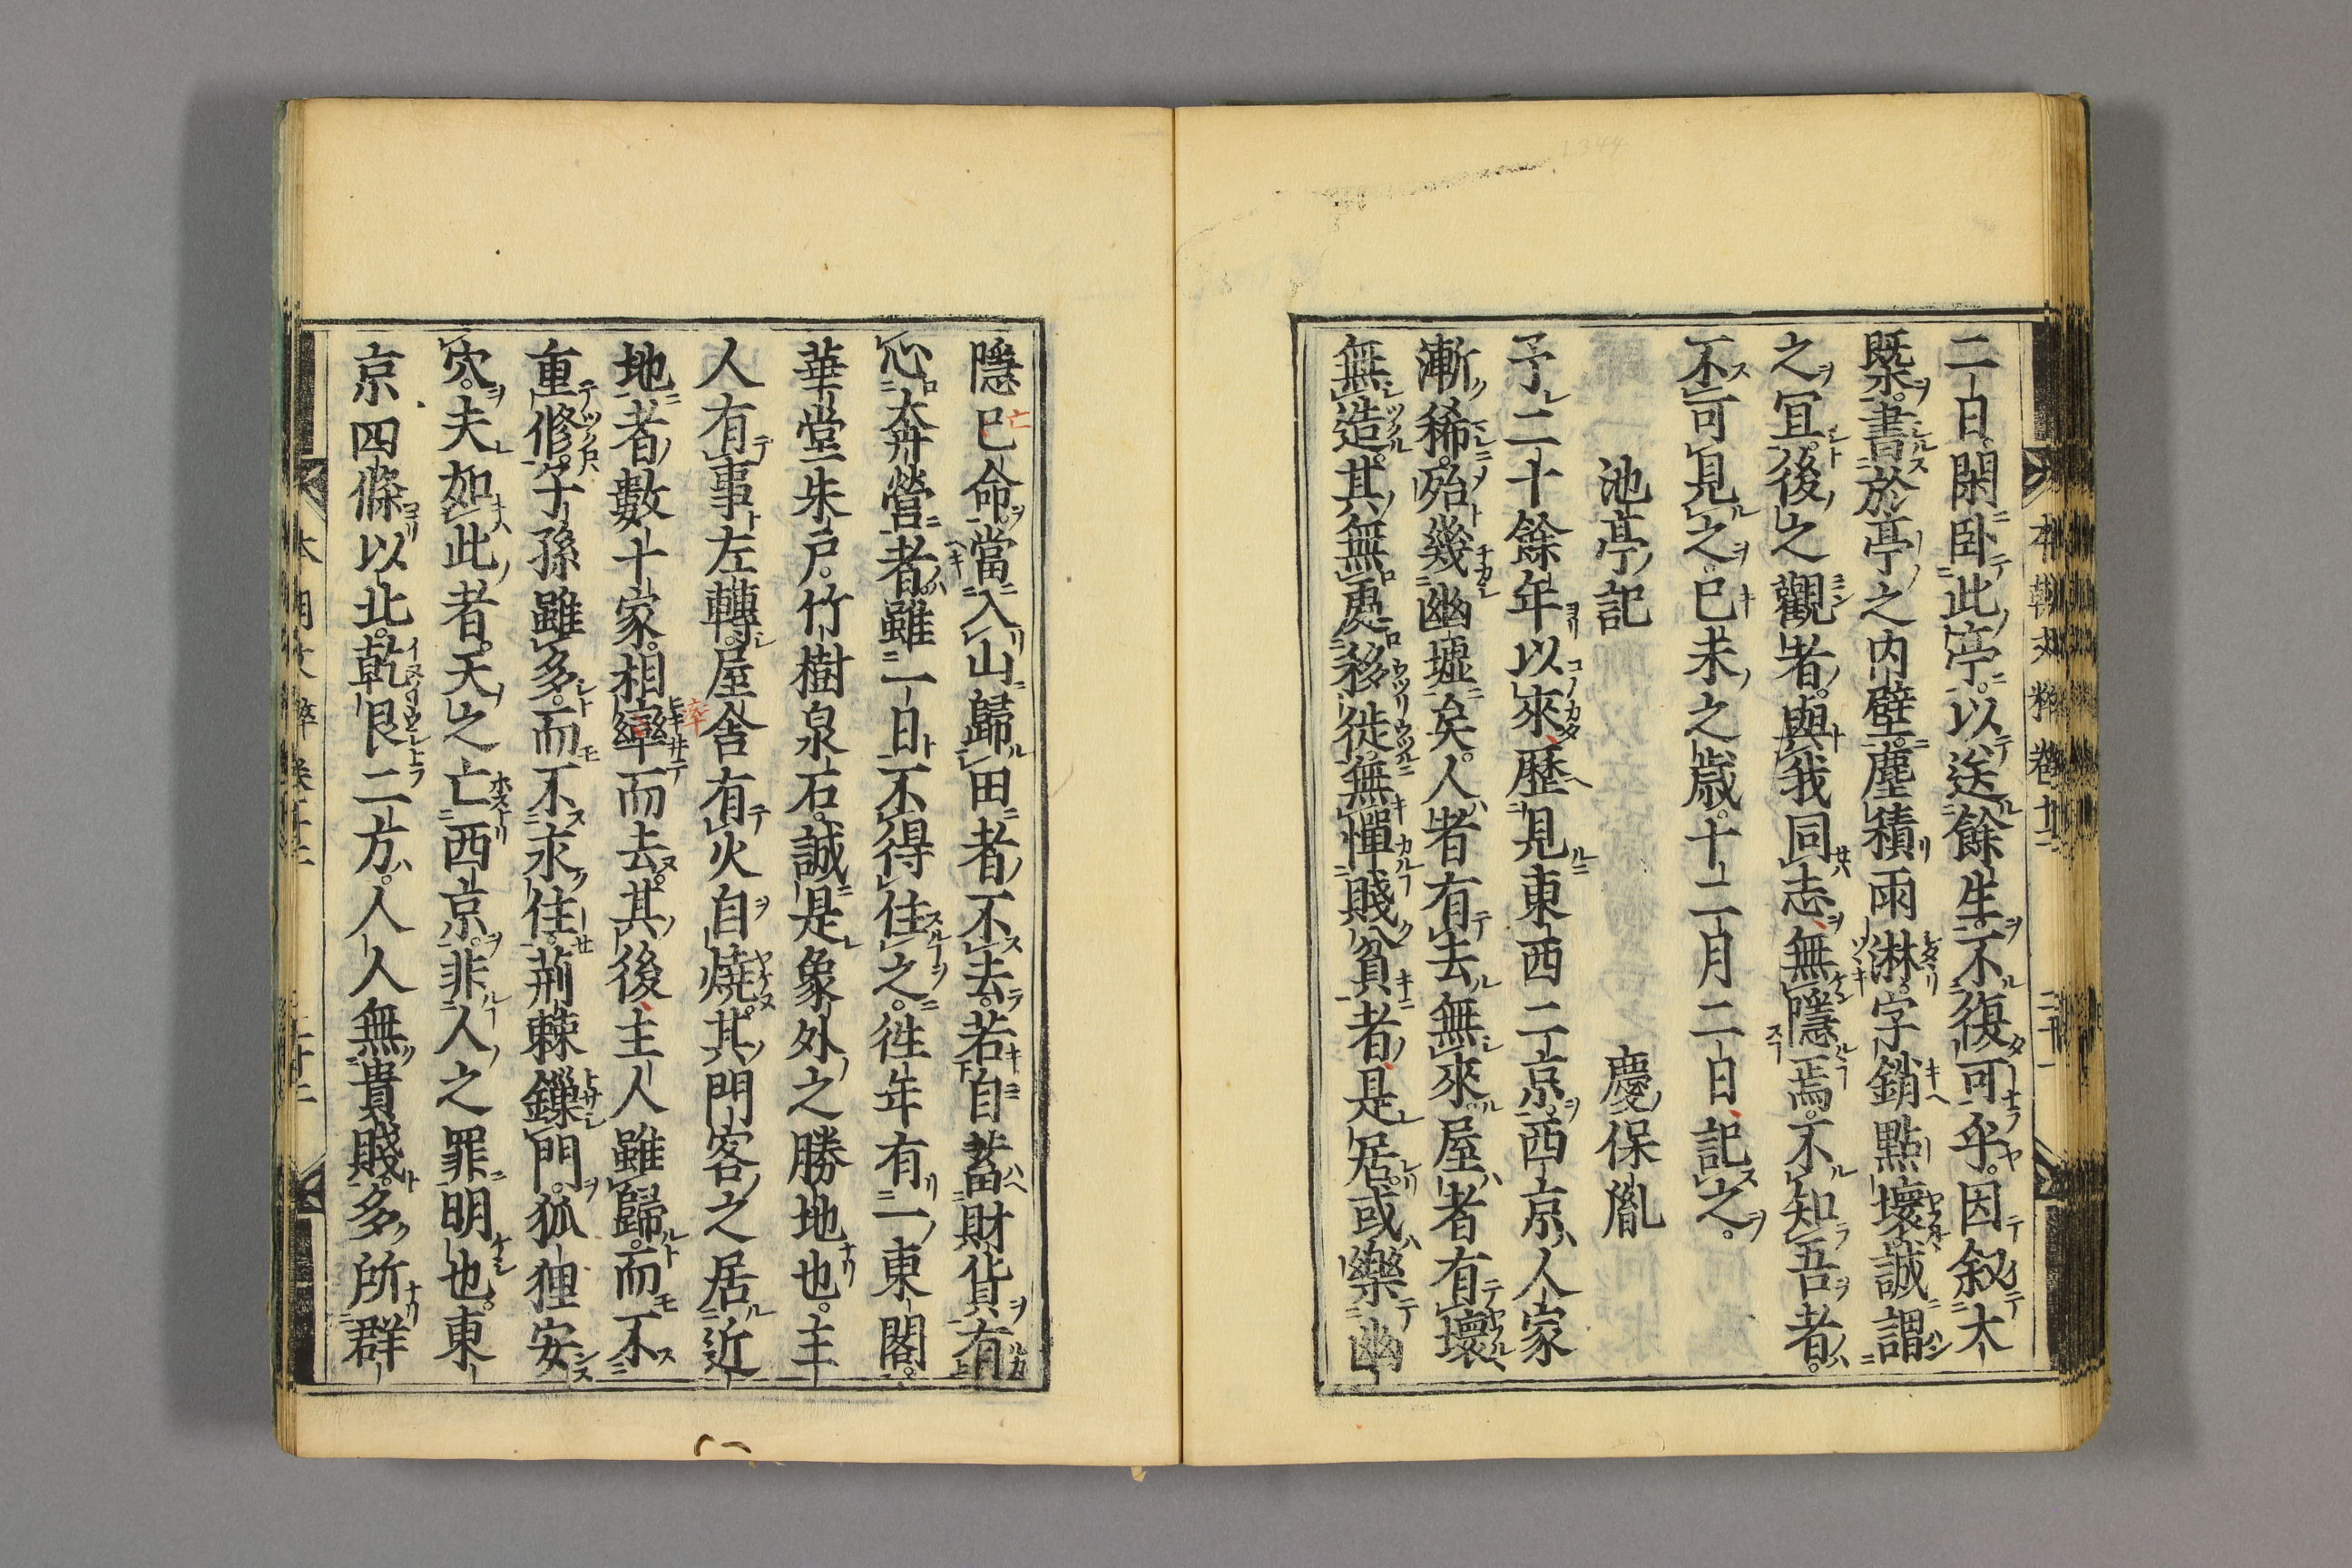 二日閑卧此亭。以送餘生。不復可乎。因叙大
槩。書於亭之内壁。塵積雨淋。字銷點壞。誠謂
之宜。後之觀者。與我同志、無隱焉。不知吾者。
不可見之。已未之歳。十二月二日、記之。
池亭記
慶保胤
予二十餘年以來、歷見東西二京。西京人家
漸稀。殆幾幽墟矣。人者有去無來。屋者有壞
無造。其無處移徙無憚賤貧者、是居。或樂幽
隱巳命。當入山歸田者不去。若自蓄財貨有
亡
心奔營者。雖一日不得住之。往年有一東閣。
華堂朱戸。竹樹泉石。誠是象外之勝地也。主
人有事左轉。屋舎有火自燒。其門客之居近
地者數十家。相率而去。其後、主人雖歸。而不
率
重修。子孫雖多。而不求住。荊棘鏁門。狐狸安
穴。夫如此者。天之亡西京。非人之罪明也。東
京四條以北。乾艮二方。人人無貴賤。多所群
本朝文粹 卷十二